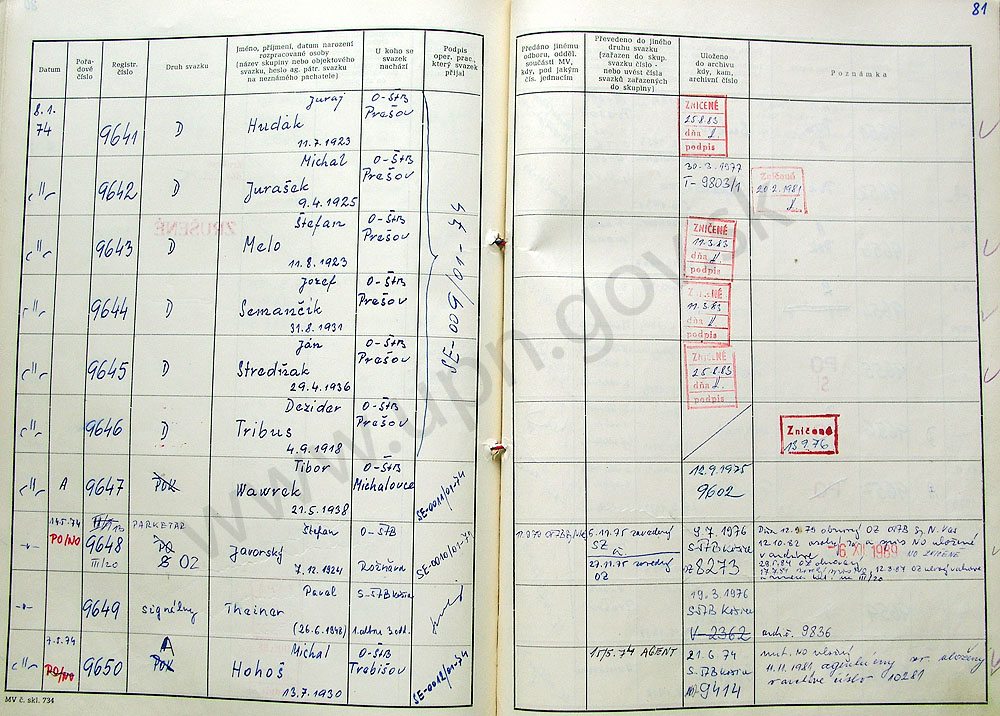 81
Datum
Pořadové číslo
Registr. číslo
Druh svazku
Jméno, příjmení, datum narození
rozpracované osoby
(název skupiny nebo objektového
svazku, heslo ag. pátr. svazku
na neznámého pachatele)
U koho se
svazek
nachází
Podpis
oper. prac.,
který svazek
přijal
Předáno jinému
odboru, odděl.
součásti MV,
kdy, pod jakým
čís. jednacím
Převedeno do jiného
druhu svazku
(zařazen do skup.
svazku číslo -
nebo uvést čísla
svazků zařazených
do skupiny)
Uloženo
do archivu
kdy, kam,
archivní číslo
Poznámka
8.1.
74
9641
D
Juraj
Hudák
11.7.1923
O-ŠtB
Prešov
ZNIČENÉ
25.8.83
dňa
podpis
9642
D
Michal
Jurašek
9.4.1925
O-ŠtB
Prešov
30.3.1977
T-9803/1
Zničené
20.2.1981
9643
D
Štefan
Melo
11.8.1923
O-ŠtB
Prešov
ZNIČENÉ
11.3.83
dňa
podpis
9644
D
Jozef
Semančík
31.8.1931
O-ŠtB
Prešov
ZNIČENÉ
11.3.83
dňa
podpis
9645
D
Ján
Stredňak
29.4.1936
O-ŠtB
Prešov
ZNIČENÉ
25.8.83
dňa
podpis
SE-009/01-74
9646
D
Dezider
Tribus
4.9.1918
O-ŠtB
Prešov
Zničené
13.9.76
A
9647
POK
Tibor
Wawrek
21.5.1938
O-ŠtB
Michalovce
SE-0011/01-74
12.9.1975
9602
14.5.74
PO/NO
9648
III/20
PARKETÁR
PO
OZ
Štefan
Javorský
7.12.1924
O-ŠtB
Rožňava
SE-0010/01-74
6.11.75 zavedený
SZ
27.11.75 zavedený
OZ
9.7.1976
S-ŠtB Košice
OZ 8273
-6 XII. 1989
NO ZNIČENÉ
9649
signálny
Pavol
Thainer
(26.6.1948)
S-ŠtB Košice
19.3.1976
S-ŠtB Košice
V-2362
arch. č. 9836
7.8.74
PO/NO
9650
A
POK
Michal
Hohoš
13.7.1930
O-ŠtB
Trebišov
SE-0012/01-74
15/5.74 AGENT
21.6.74
S-ŠtB Košice
9414
11.11.1981 agentúrny zv. uložený
v archíve číslo 10281
MV č. skl. 734
www.upn.gov.sk